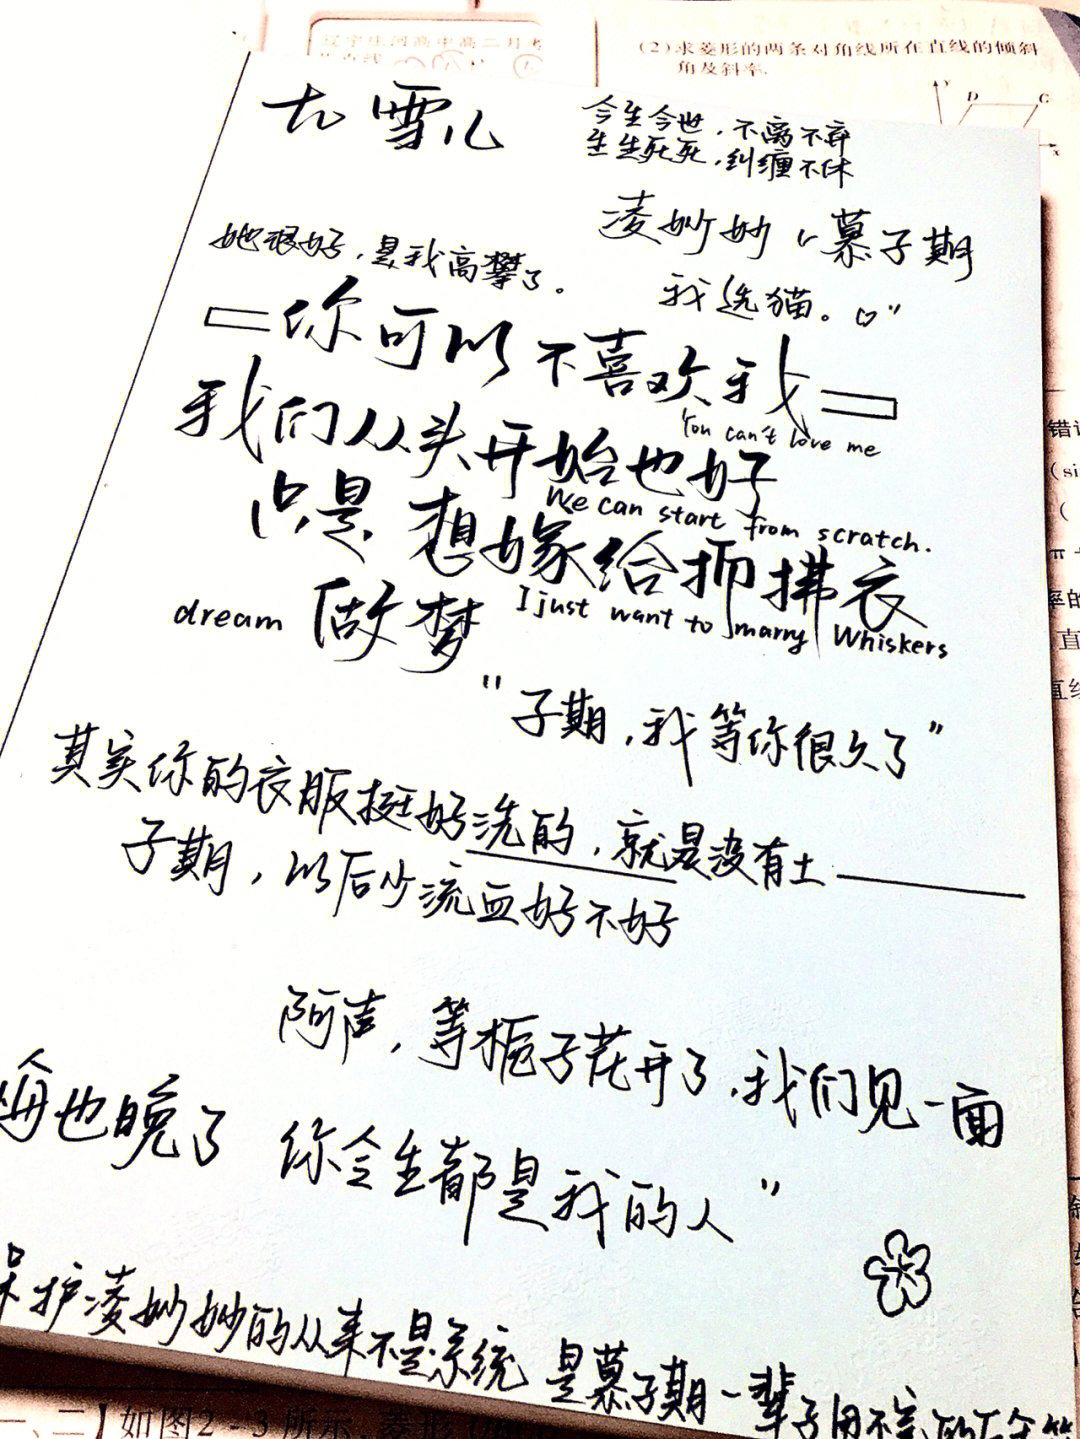 辽宁庄河高中高二月考
(2)求菱形的两条对角线所在直线的倾斜
角及斜率.
y
D
C
x
大雪儿
今生今世,不离不弃
生生死死,纠缠不休
凌妙妙 慕子期
她很好,是我高攀了。
我选猫。"
你可以不喜欢我
You can't love me
我们从头开始也好
We can start from scratch.
只是想嫁给拂衣
I just want to marry Whiskers
dream 做梦
"子期,我等你很久了"
其实你的衣服挺好洗的,就是没有土
子期,以后少流血好不好
阿声,等栀子花开了,我们见一面
悔也晚了 你今生都是我的人"
保护凌妙妙的从来不是系统 是慕子期一辈子用不完的
错
(si
(
π
率的
直
直线
一、二】如图2-3所示 菱形